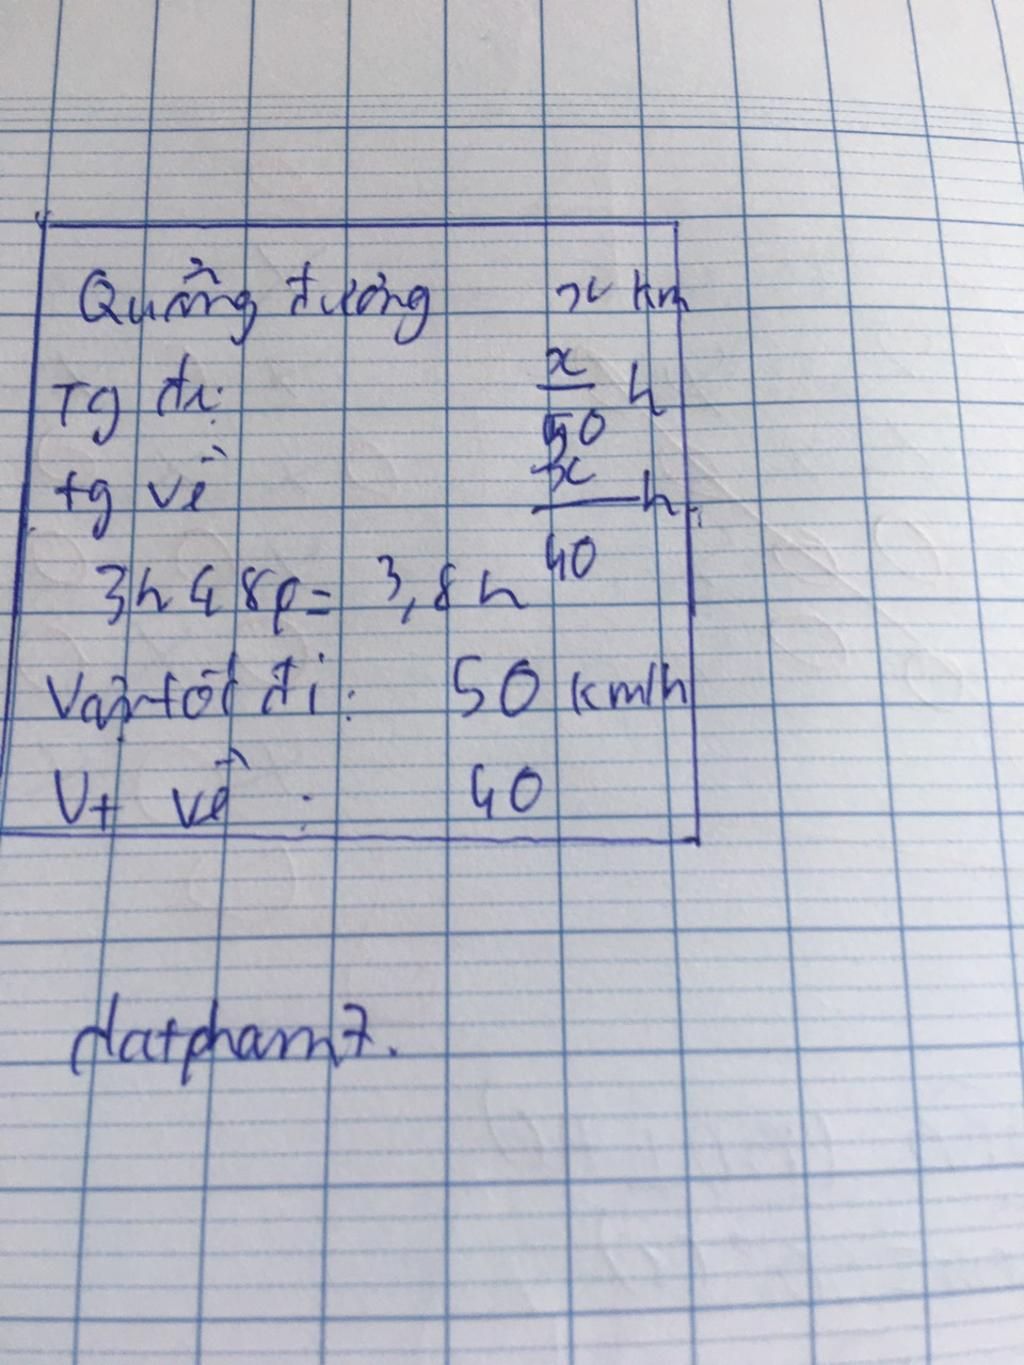 Quãng đường x km
Tg đi x/50 h
tg về x/40 h
3h48p = 3,8h
Vận tốt đi: 50 km/h
Vt về : 40
datpham7.